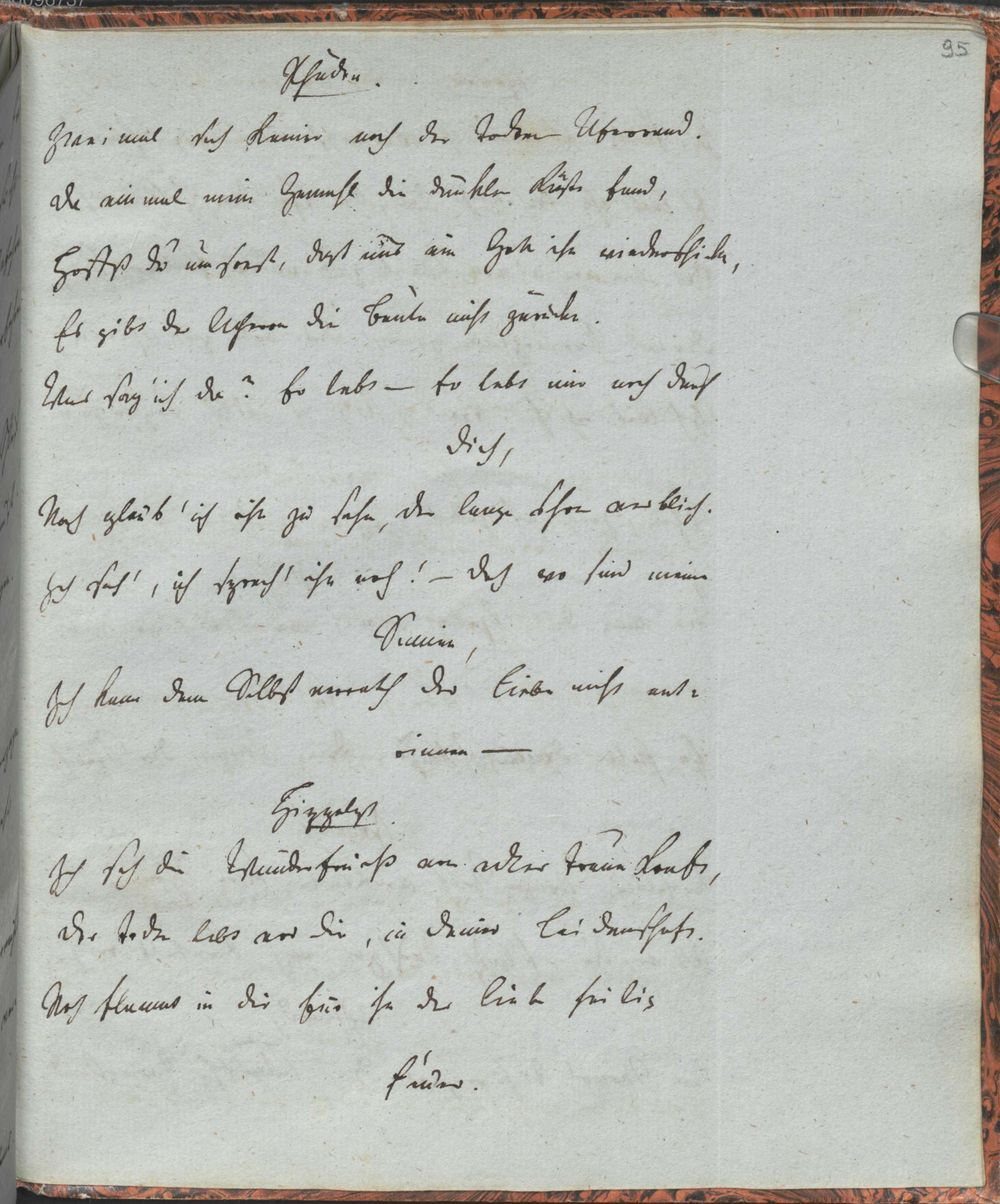 95
Phädra.
Zweimal sah Keiner noch der Todten Uferrand.
Da einmal mein Gemahl die dunkle Küste fand,
Hoffst du umsonst, daß uns ein Gott ihn wiederschicke,
Es gibt der Acheron die Beute nicht zurücke.
Was sag' ich da? Er lebt — Er lebt mir noch durch
dich,
Noch glaub' ich ihn zu sehn, der lange schon verblich.
Ich seh', ich sprech' ihn noch! — doch wo sind meine
Sinnen,
Ich kann dem Selbstverrath der Liebe nicht ent=
rinnen —
Hippolyt.
Ich seh die Wunderfrucht von edler Treue Kraft,
Der Todte lebt vor dir, in deiner Leidenschaft.
Noch flammt in dir für ihn der Liebe heilig
Feuer.